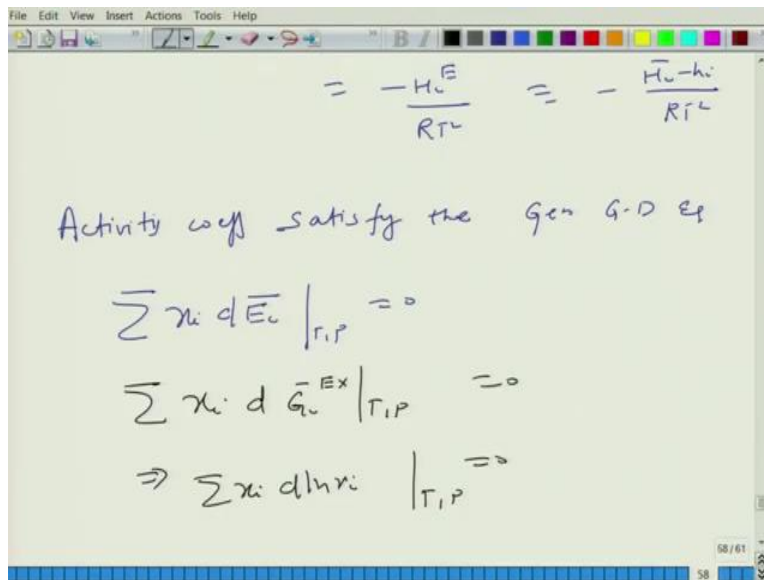 File Edit View Insert Actions Tools Help
= -H̄ᵢᴱ / RT² = - (H̄ᵢ - hᵢ) / RT²
Activity coeff satisfy the Gen G-D Eq
Σ xᵢ d Ēᵢ |T,P = 0
Σ xᵢ d Ḡᵢᴱˣ |T,P = 0
⇒ Σ xᵢ d ln γᵢ |T,P = 0
58/61
58